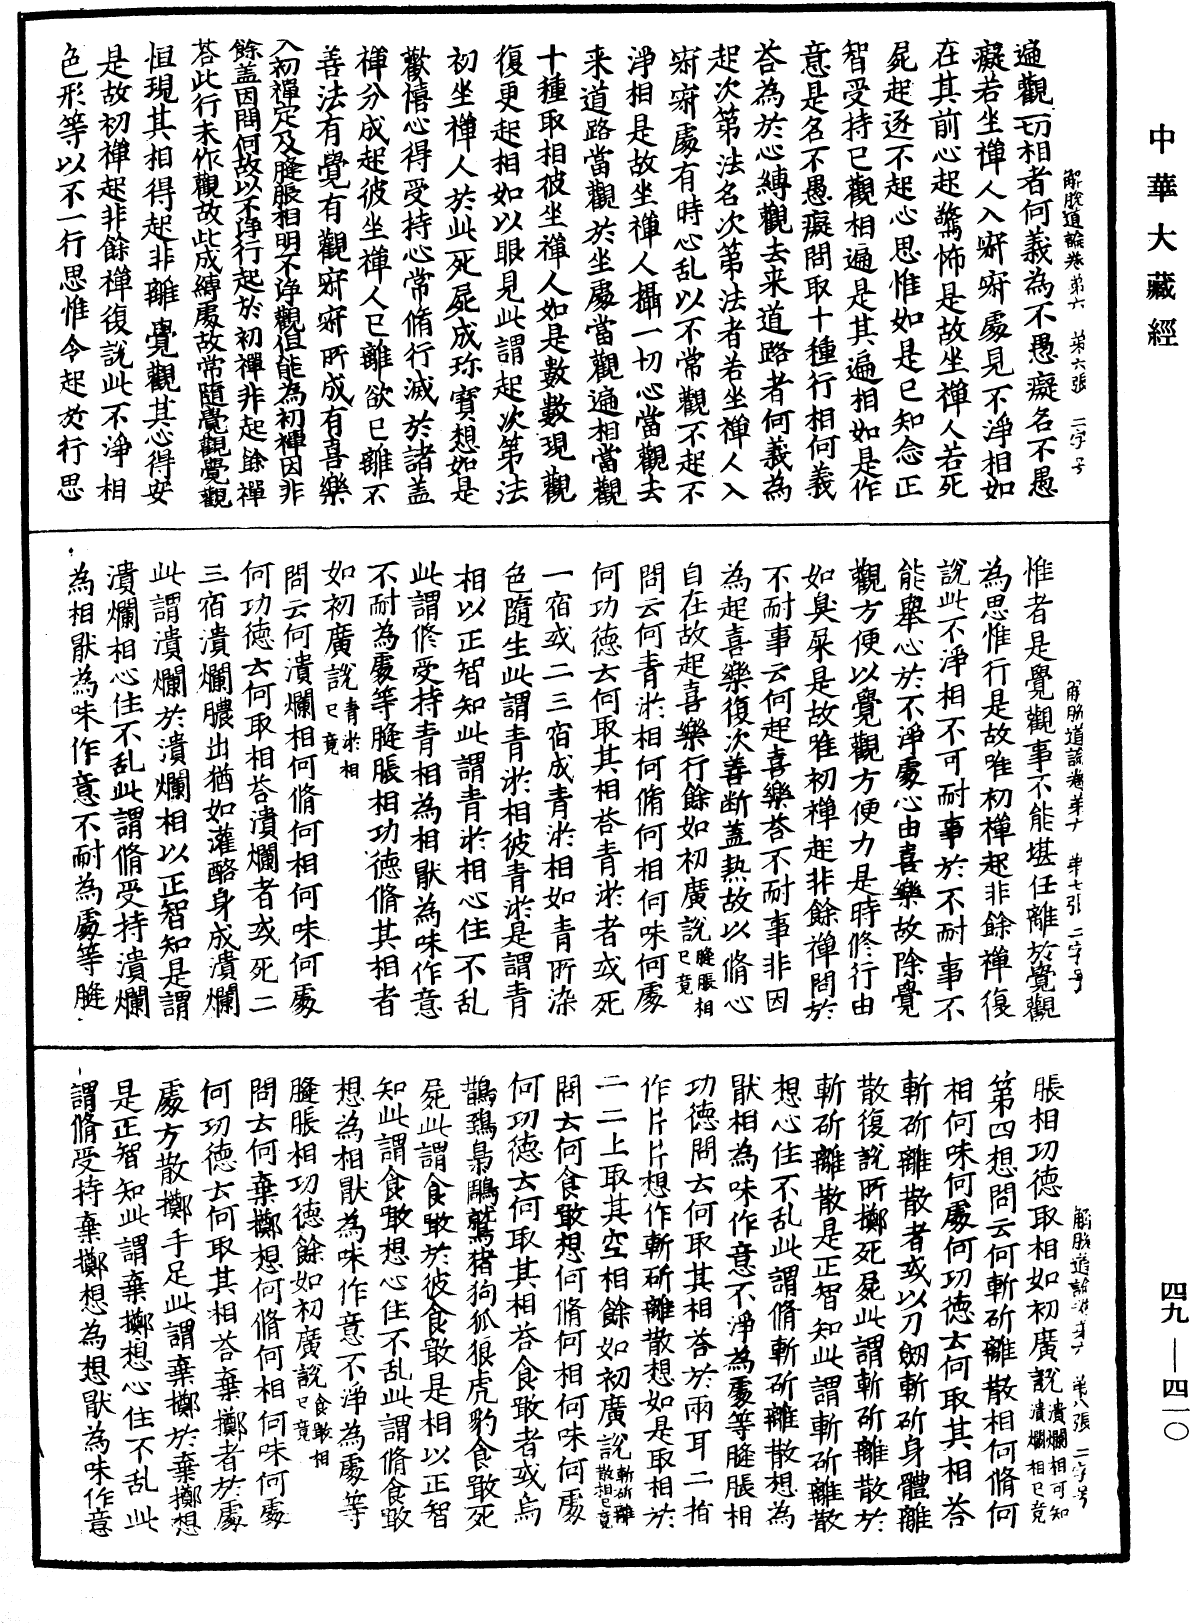 中華大藏經
解脫道論卷第六　第六張　二字号
遍觀一切相者何義為不愚癡名不愚
癡若坐禪人入寂寂處見不淨相如
在其前心起驚怖是故坐禪人若死
屍起逐不起心思惟如是已知念正
智受持已觀相遍是其遍相如是作
意是名不愚癡問取十種行相何義
荅為於心縛觀去来道路者何義為
起次第法名次第法者若坐禪人入
寂寂處有時心乱以不常觀不起不
淨相是故坐禪人攝一切心當觀去
来道路當觀於坐處當觀遍相當觀
十種取相彼坐禪人如是數數現觀
復更起相如以眼見此謂起次第法
初坐禪人於此死屍成珎寶想如是
歡憘心得受持心常脩行滅於諸蓋
禪分成起彼坐禪人已離欲已離不
善法有覺有觀寂寂所成有喜樂
入初禪定及膖脹相明不淨觀但能為初禪因非
餘蓋因問何故以不淨行起於初禪非起餘禪
荅此行未作觀故此成縛處故常隨覺觀覺觀
恒現其相得起非離覺觀其心得安
是故初禪起非餘禪復說此不淨相
色形等以不一行思惟令起於行思
解脫道論卷第六　第七張　二字号
惟者是覺觀事不能堪任離於覺觀
為思惟行是故唯初禪起非餘禪復
說此不淨相不可耐事於不耐事不
能舉心於不淨處心由喜樂故除覺
觀方便以覺觀方便力是時修行由
如臭屎是故唯初禪起非餘禪問於
不耐事云何起喜樂荅不耐事非因
為起喜樂復次善断蓋熱故以脩心
自在故起喜樂行餘如初廣說膖脹相已竟
問云何青淤相何脩何相何味何處
何功德云何取其相荅青淤者或死
一宿或二三宿成青淤相如青所染
色隨生此謂青淤相彼青淤是謂青
相以正智知此謂青淤相心住不乱
此謂修受持青相為相猒為味作意
不耐為處等膖脹相功德脩其相者
如初廣說青淤相已竟
問云何潰爛相何脩何相何味何處
何功德云何取相荅潰爛者或死二
三宿潰爛膿出猶如灌酪身成潰爛
此謂潰爛於潰爛相以正智知是謂
潰爛相心住不乱此謂脩受持潰爛
為相猒為味作意不耐為處等膖
解脫道論卷第六　第八張　二字号
脹相功德取相如初廣說潰爛相可知潰爛相已竟
第四想問云何斬斫離散相何脩何
相何味何處何功德云何取其相荅
斬斫離散者或以刀劒斬斫身體離
散復說所擲死屍此謂斬斫離散於
斬斫離散是正智知此謂斬斫離散
想心住不乱此謂脩斬斫離散想為
猒相為味作意不淨為處等膖脹相
功德問云何取其相荅於兩耳二指
作片片想作斬斫離散想如是取相於
二二上取其空相餘如初廣說斬斫離散相已竟
問云何食噉想何脩何相何味何處
何功德云何取其相荅食噉者或烏
鵲鵄梟鵰鷲猪狗狐狼虎豹食噉死
屍此謂食噉於彼食噉是相以正智
知此謂食噉想心住不乱此謂脩食噉
想為相猒為味作意不淨為處等
膖脹相功德餘如初廣說食噉相已竟
問云何棄擲想何脩何相何味何處
何功德云何取其相荅棄擲者於處
處方散擲手足此謂棄擲於棄擲想
是正智知此謂棄擲想心住不乱此
謂脩受持棄擲想為想猒為味作意
四九—四一〇